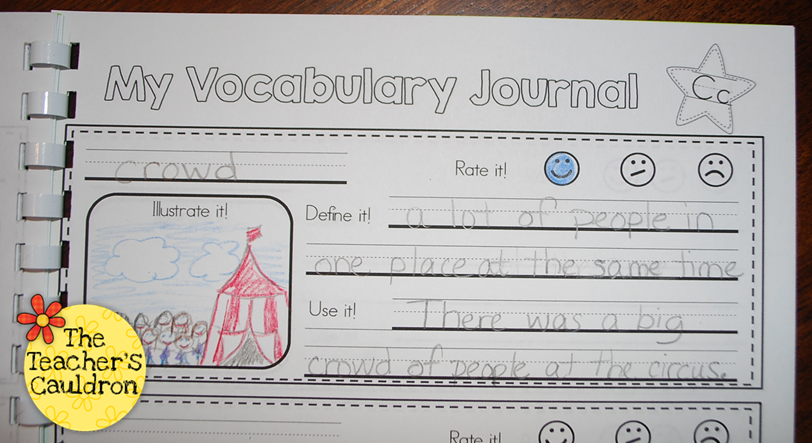 My Vocabulary Journal
Cc
crowd
Rate it!
Illustrate it!
Define it! a lot of people in
one place at the same time
Use it! There was a big
crowd of people at the circus.
The
Teacher's
Cauldron
Rate it!